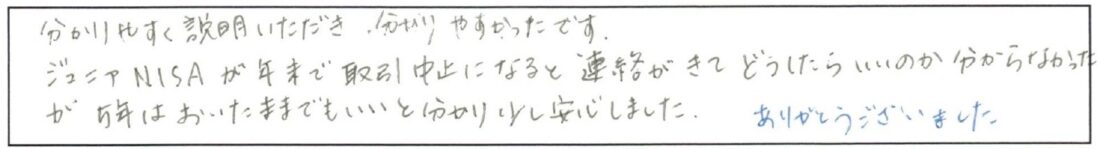 分かりやすく説明いただき、分かりやすかったです。
ジュニアNISAが年末で取引中止になると連絡がきてどうしたらいいのか分からなかった
が5年はおいたままでもいいと分かり少し安心しました. ありがとうございました